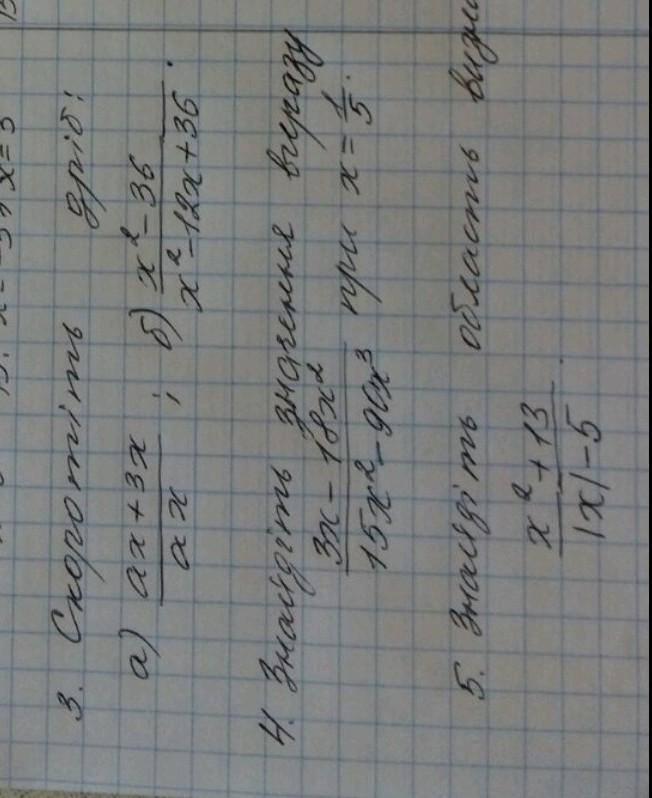 3. Скоротіть дріб:
а) (ax+3x)/(ax); б) (x²-36)/(x²-12x+36).
4. Знайдіть значення виразу
(3x-18x²)/(15x²-90x³) при x = 1/5.
5. Знайдіть область
(x²+13)/(|x|-5).